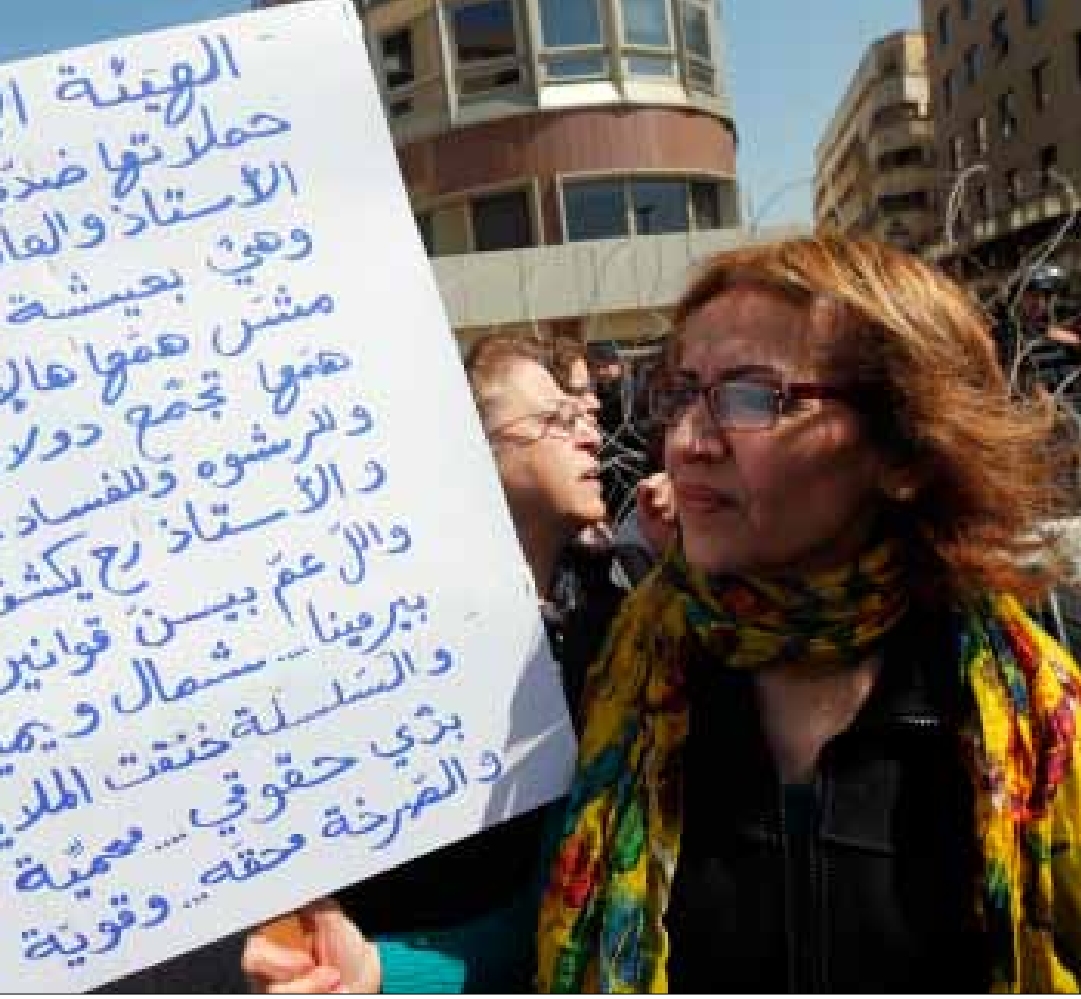 الهيئة
حملاتها ضدّ
الأستاذ والعا
وهيّ بعيشة
مشّ همّها هال
همّها تجمّع دولا
وللرشوه وللفساد
والأستاذ رح يكشف
واللّ عمّ بيسنّ قوانير
بيرمينا... شمال ويميـ
والسّلسلة خنقت الملايـ
بدّي حقوقي .... محميّة
والصّرخة محقّه... وقويّة